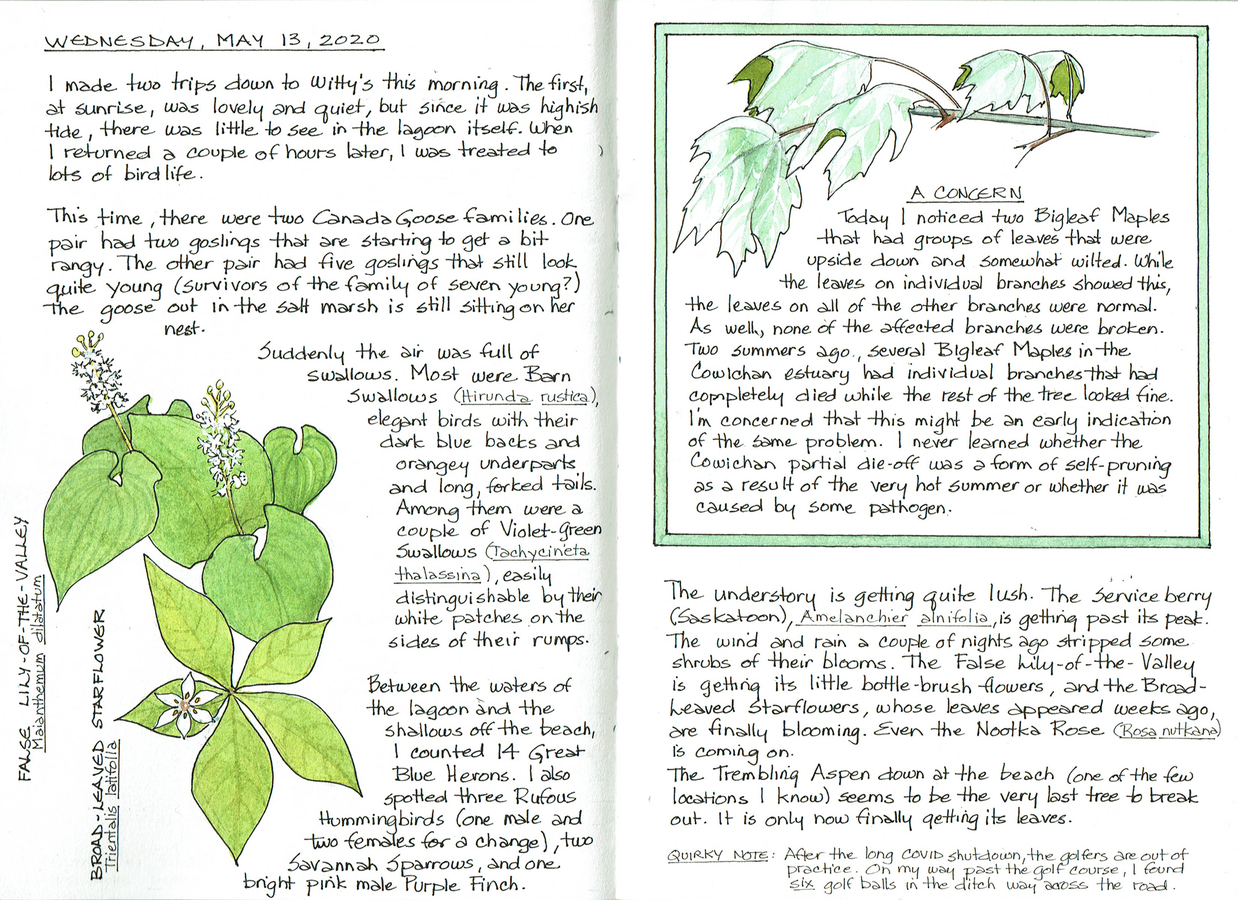 WEDNESDAY, MAY 13, 2020
I made two trips down to Witty's this morning. The first,
at sunrise, was lovely and quiet, but since it was highish
tide, there was little to see in the lagoon itself. When
I returned a couple of hours later, I was treated to
lots of bird life.
This time, there were two Canada Goose families. One
pair had two goslings that are starting to get a bit
rangy. The other pair had five goslings that still look
quite young (survivors of the family of seven young?)
The goose out in the salt marsh is still sitting on her
nest.
Suddenly the air was full of
swallows. Most were Barn
Swallows (Hirunda rustica),
elegant birds with their
dark blue backs and
orangey underparts
and long, forked tails.
Among them were a
couple of Violet-Green
Swallows (Tachycineta
thalassina), easily
distinguishable by their
white patches on the
sides of their rumps.
Between the waters of
the lagoon and the
shallows off the beach,
I counted 14 Great
Blue Herons. I also
spotted three Rufous
Hummingbirds (one male and
two females for a change), two
Savannah Sparrows, and one
bright pink male Purple Finch.
FALSE LILY-OF-THE-VALLEY
Maianthemum dilatatum
BROAD-LEAVED STARFLOWER
Trientalis latifolia
A CONCERN
Today I noticed two Bigleaf Maples
that had groups of leaves that were
upside down and somewhat wilted. While
the leaves on individual branches showed this,
the leaves on all of the other branches were normal.
As well, none of the affected branches were broken.
Two summers ago, several Bigleaf Maples in the
Cowichan estuary had individual branches that had
completely died while the rest of the tree looked fine.
I'm concerned that this might be an early indication
of the same problem. I never learned whether the
Cowichan partial die-off was a form of self-pruning
as a result of the very hot summer or whether it was
caused by some pathogen.
The understory is getting quite lush. The Service berry
(Saskatoon), Amelanchier alnifolia, is getting past its peak.
The wind and rain a couple of nights ago stripped some
shrubs of their blooms. The False Lily-of-the-Valley
is getting its little bottle-brush flowers, and the Broad-
Leaved Starflowers, whose leaves appeared weeks ago,
are finally blooming. Even the Nootka Rose (Rosa nutkana)
is coming on.
The Trembling Aspen down at the beach (one of the few
locations I know) seems to be the very last tree to break
out. It is only now finally getting its leaves.
QUIRKY NOTE: After the long COVID shutdown, the golfers are out of
practice. On my way past the golf course, I found
six golf balls in the ditch way across the road.